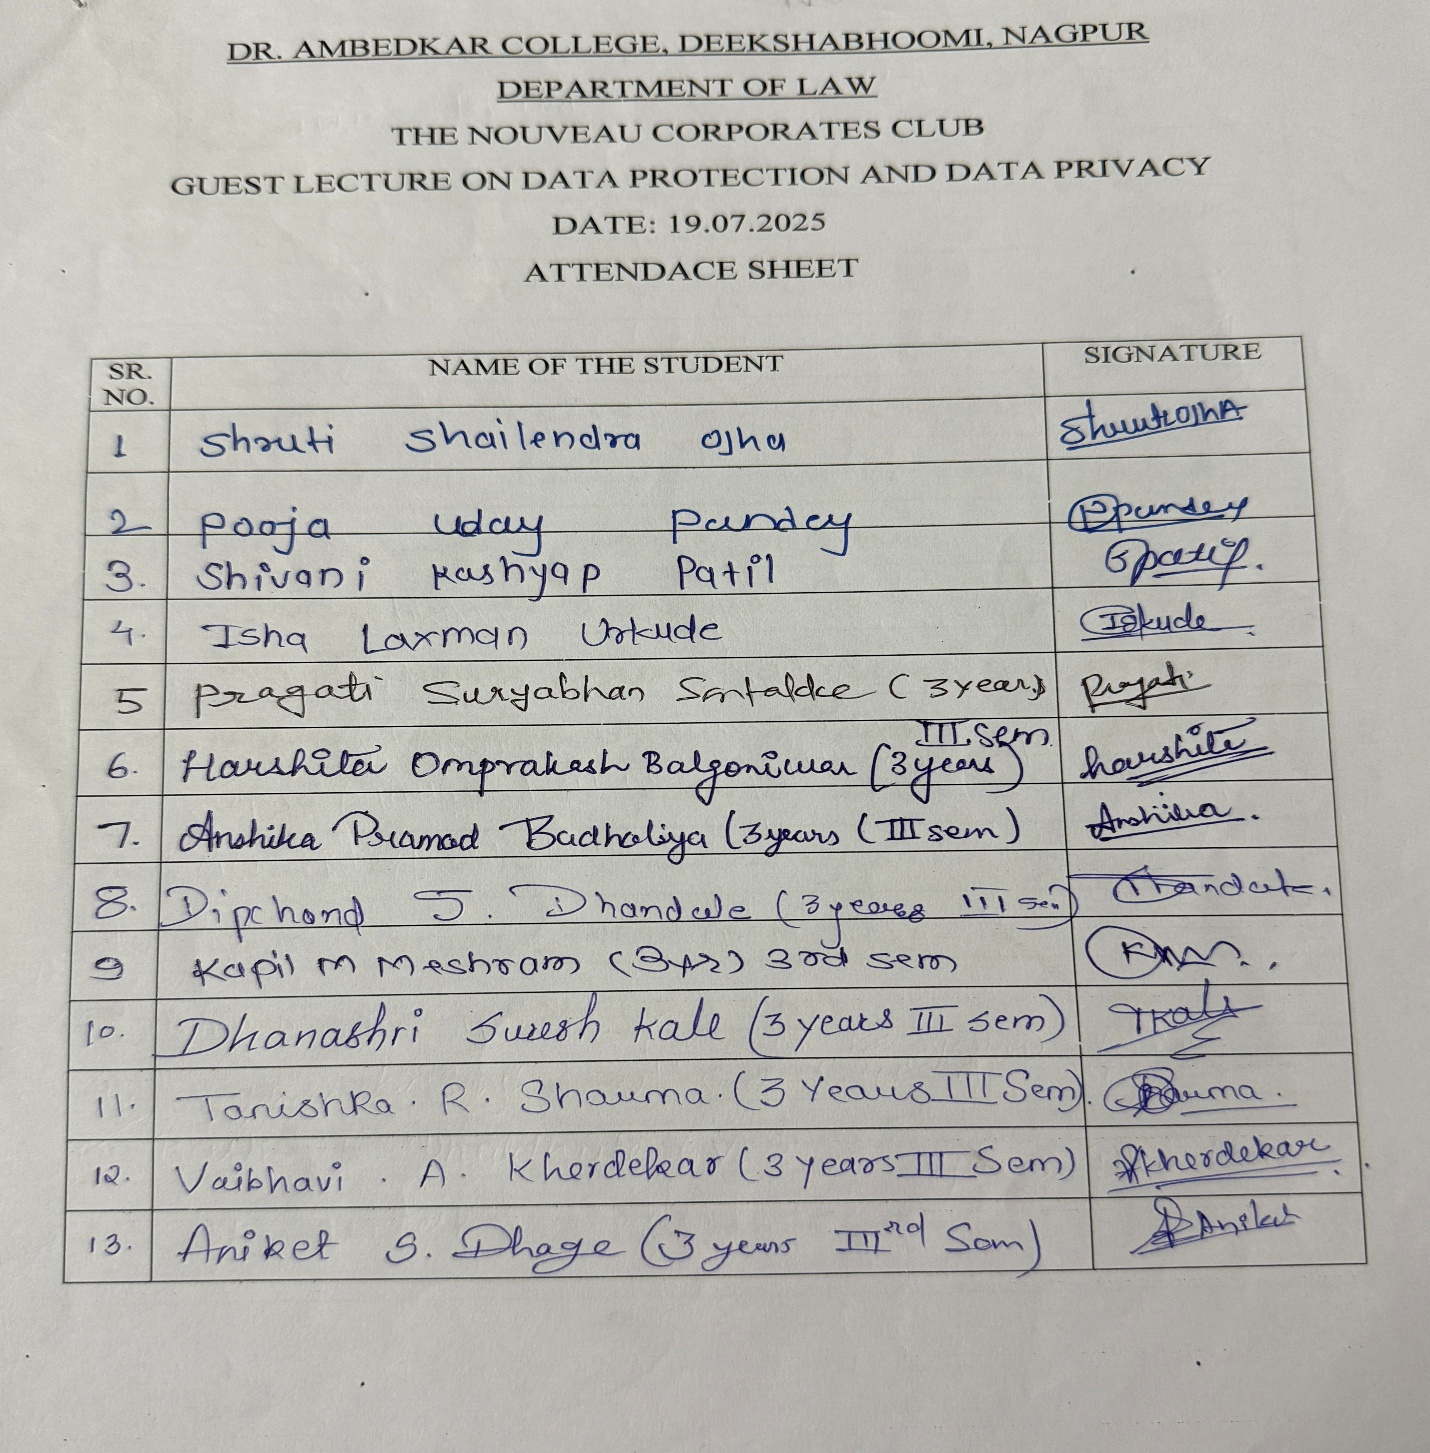 DR. AMBEDKAR COLLEGE, DEEKSHABHOOMI, NAGPUR
DEPARTMENT OF LAW
THE NOUVEAU CORPORATES CLUB
GUEST LECTURE ON DATA PROTECTION AND DATA PRIVACY
DATE: 19.07.2025
ATTENDACE SHEET
SR. NO. NAME OF THE STUDENT SIGNATURE
1 Shruti Shailendra Ojha ShrutiOjhA
2 Pooja Uday Pandey PPandey
3. Shivani Kashyap Patil Spatil.
4. Isha Laxman Urkude
5 Pragati Suryabhan (3 years) Pragati
III Sem
6. Harshita Omprakash Balgoniwar (3 years) harshita
7. Anshika Pramod Badholiya (3 years (III sem) Anshika.
8. Dipchand J. Dhandale (3 years III sem)
9 Kapil M Meshram (3yr) 3rd sem
10. Dhanashri Suresh Kale (3 years III sem)
11. Tanishka. R. Sharma. (3 Years III Sem).
12. Vaibhavi. A. Kherdekar (3 years III Sem) Kherdekar
13. Aniket S. Dhage (3 years III rd Sem) Aniket